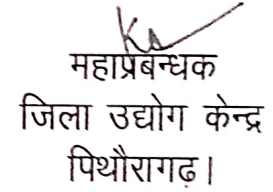 महाप्रबन्धक
जिला उद्योग केन्द्र
पिथौरागढ़।